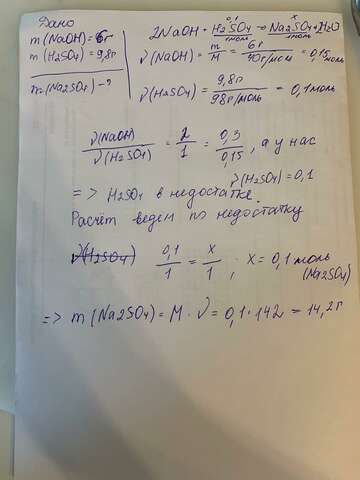 Дано
m(NaOH)=6г
m(H2SO4)=9,8г
m(Na2SO4)-?
2NaOH + H2SO4 → Na2SO4+2H2O
0,1 x
1моль 1моль
ν(NaOH) = m/M = 6г/40г/моль = 0,15моль
ν(H2SO4) = 9,8г/98г/моль = 0,1моль
ν(NaOH)/ν(H2SO4) = 2/1 = 0,3/0,15, а у нас
ν(H2SO4)=0,1
=> H2SO4 в недостатке.
Расчёт ведем по недостатку
ν(H2SO4) 0,1/1 = x/1, x = 0,1 моль
(Na2SO4)
=> m(Na2SO4) = M · ν = 0,1·142 = 14,2г